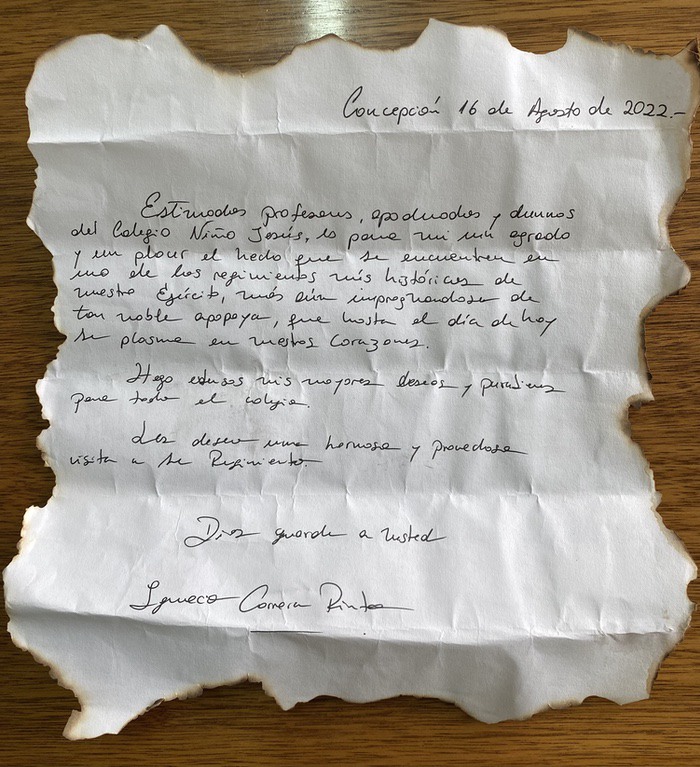 Concepción 16 de Agosto de 2022.-
Estimados profesores, apoderados y alumnos
del Colegio Niño Jesús, es para mi un agrado
y un placer el hecho que se encuentren en
uno de los regimientos más históricos de
nuestro Ejército, más aún impregnandose de
tan noble apopeya, que hasta el día de hoy
se plasma en nuestros corazones.
Hago extensos mis mayores deseos y
para todo el colegio.
Les deseo una hermosa y provechosa
visita a su Regimiento.
Dios guarde a usted
Ignacio Carrera Pinto